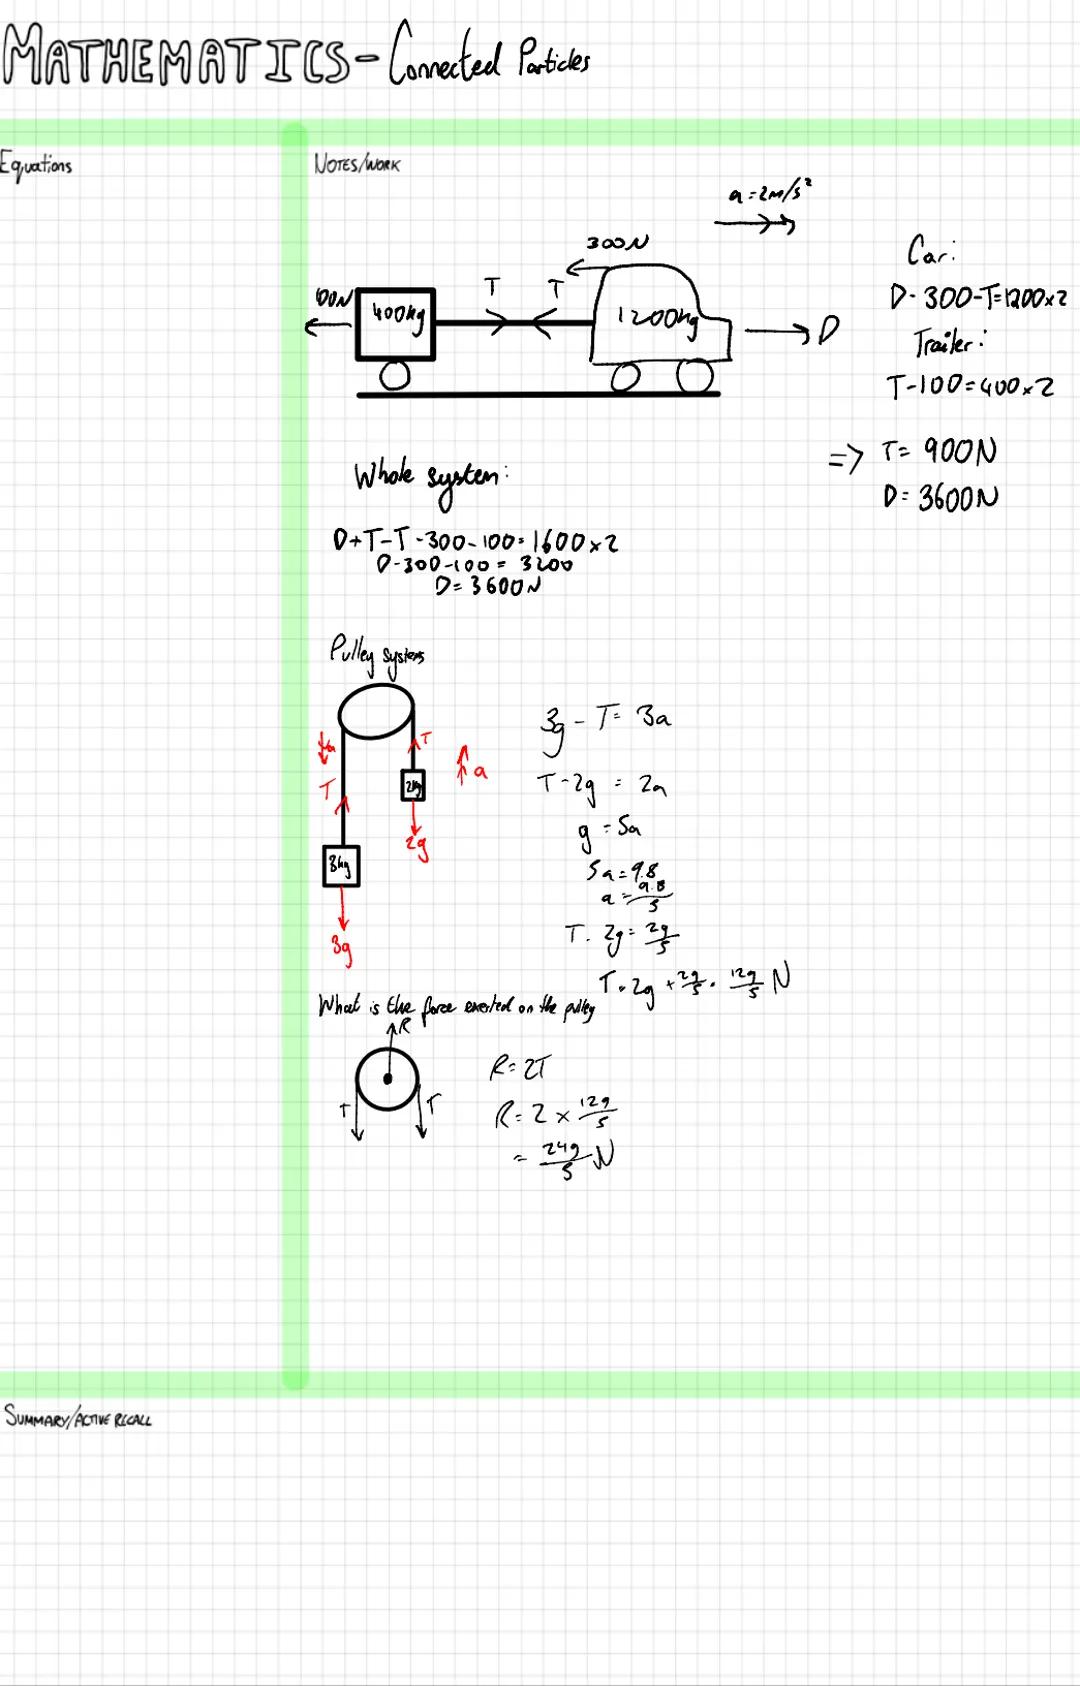 MATHEMATICS - Connected Particles
Equations
NOTES/WORK
a = 2m/s²
300N
T T
100N
400kg
1200kg
D
Car:
D - 300 - T = 1200 x 2
Trailer:
T - 100 = 400 x 2
=> T = 900N
D = 3600N
Whole system:
D + T - T - 300 - 100 = 1600 x 2
D - 300 - 100 = 3200
D = 3600N
Pulley systems
a
T
T
a
2kg
2g
3kg
3g
3g - T = 3a
T - 2g = 2a
g = 5a
5a = 9.8
a = 9.8/5
T - 2g = 2g/5
T = 2g + 2g/5 = 12g/5 N
What is the force exerted on the pulley
R
T T
R = 2T
R = 2 x 12g/5
= 24g/5 N
SUMMARY/ACTIVE RECALL